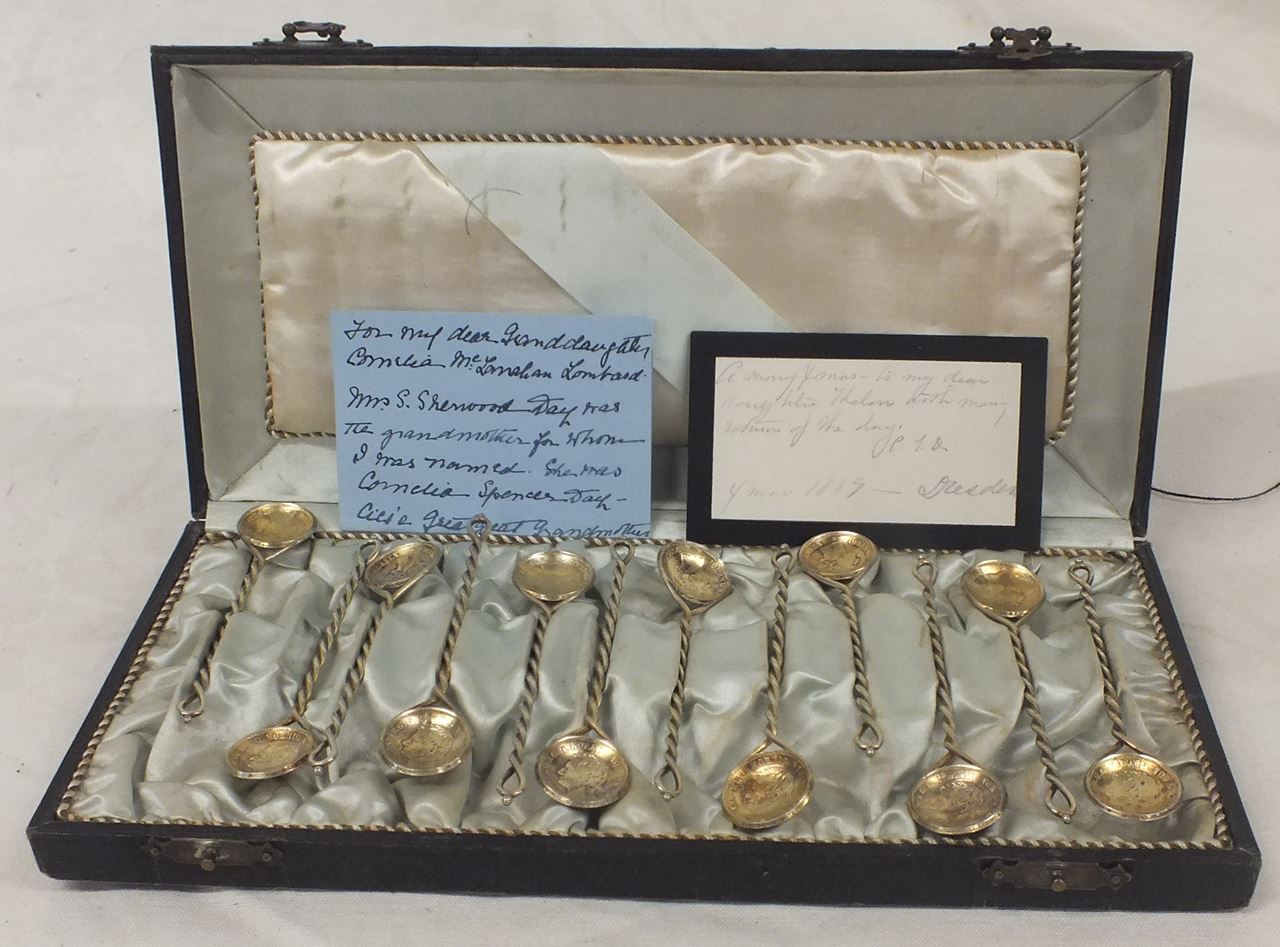 For my dear Granddaughter
Cornelia Mc Lanahan Lombard.
Mrs S. Sherwood Day was
the grandmother for whom
I was named. She was
Cornelia Spencer Day -
Cici's Great Great Grandmother
A merry Xmas - to my dear
daughter with many
returns of the day.
Xmas 1889 - Dresden